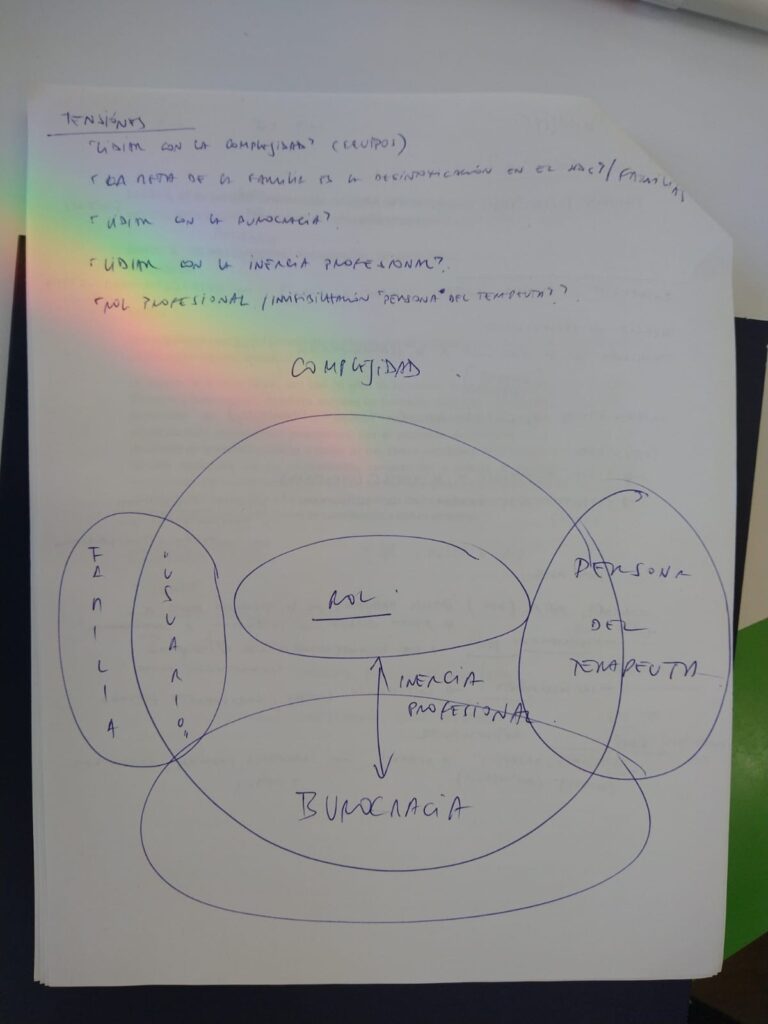 TENSIONES
"LIDIAR CON LA COMPLEJIDAD? (EQUIPOS)
" LA META DE LA FAMILIA ES LA DESINTOXICACIÓN EN EL / FAMILIAS
" LIDIAR CON LA BUROCRACIA?
" LIDIAR CON LA INERCIA PROFESIONAL?
" ROL PROFESIONAL / INVISIBILIZACIÓN "PERSONA" DEL TERAPEUTA??
COMPLEJIDAD
FAMILIA
"USUARIO"
ROL
PERSONA
DEL
TERAPEUTA
INERCIA
PROFESIONAL
BUROCRACIA